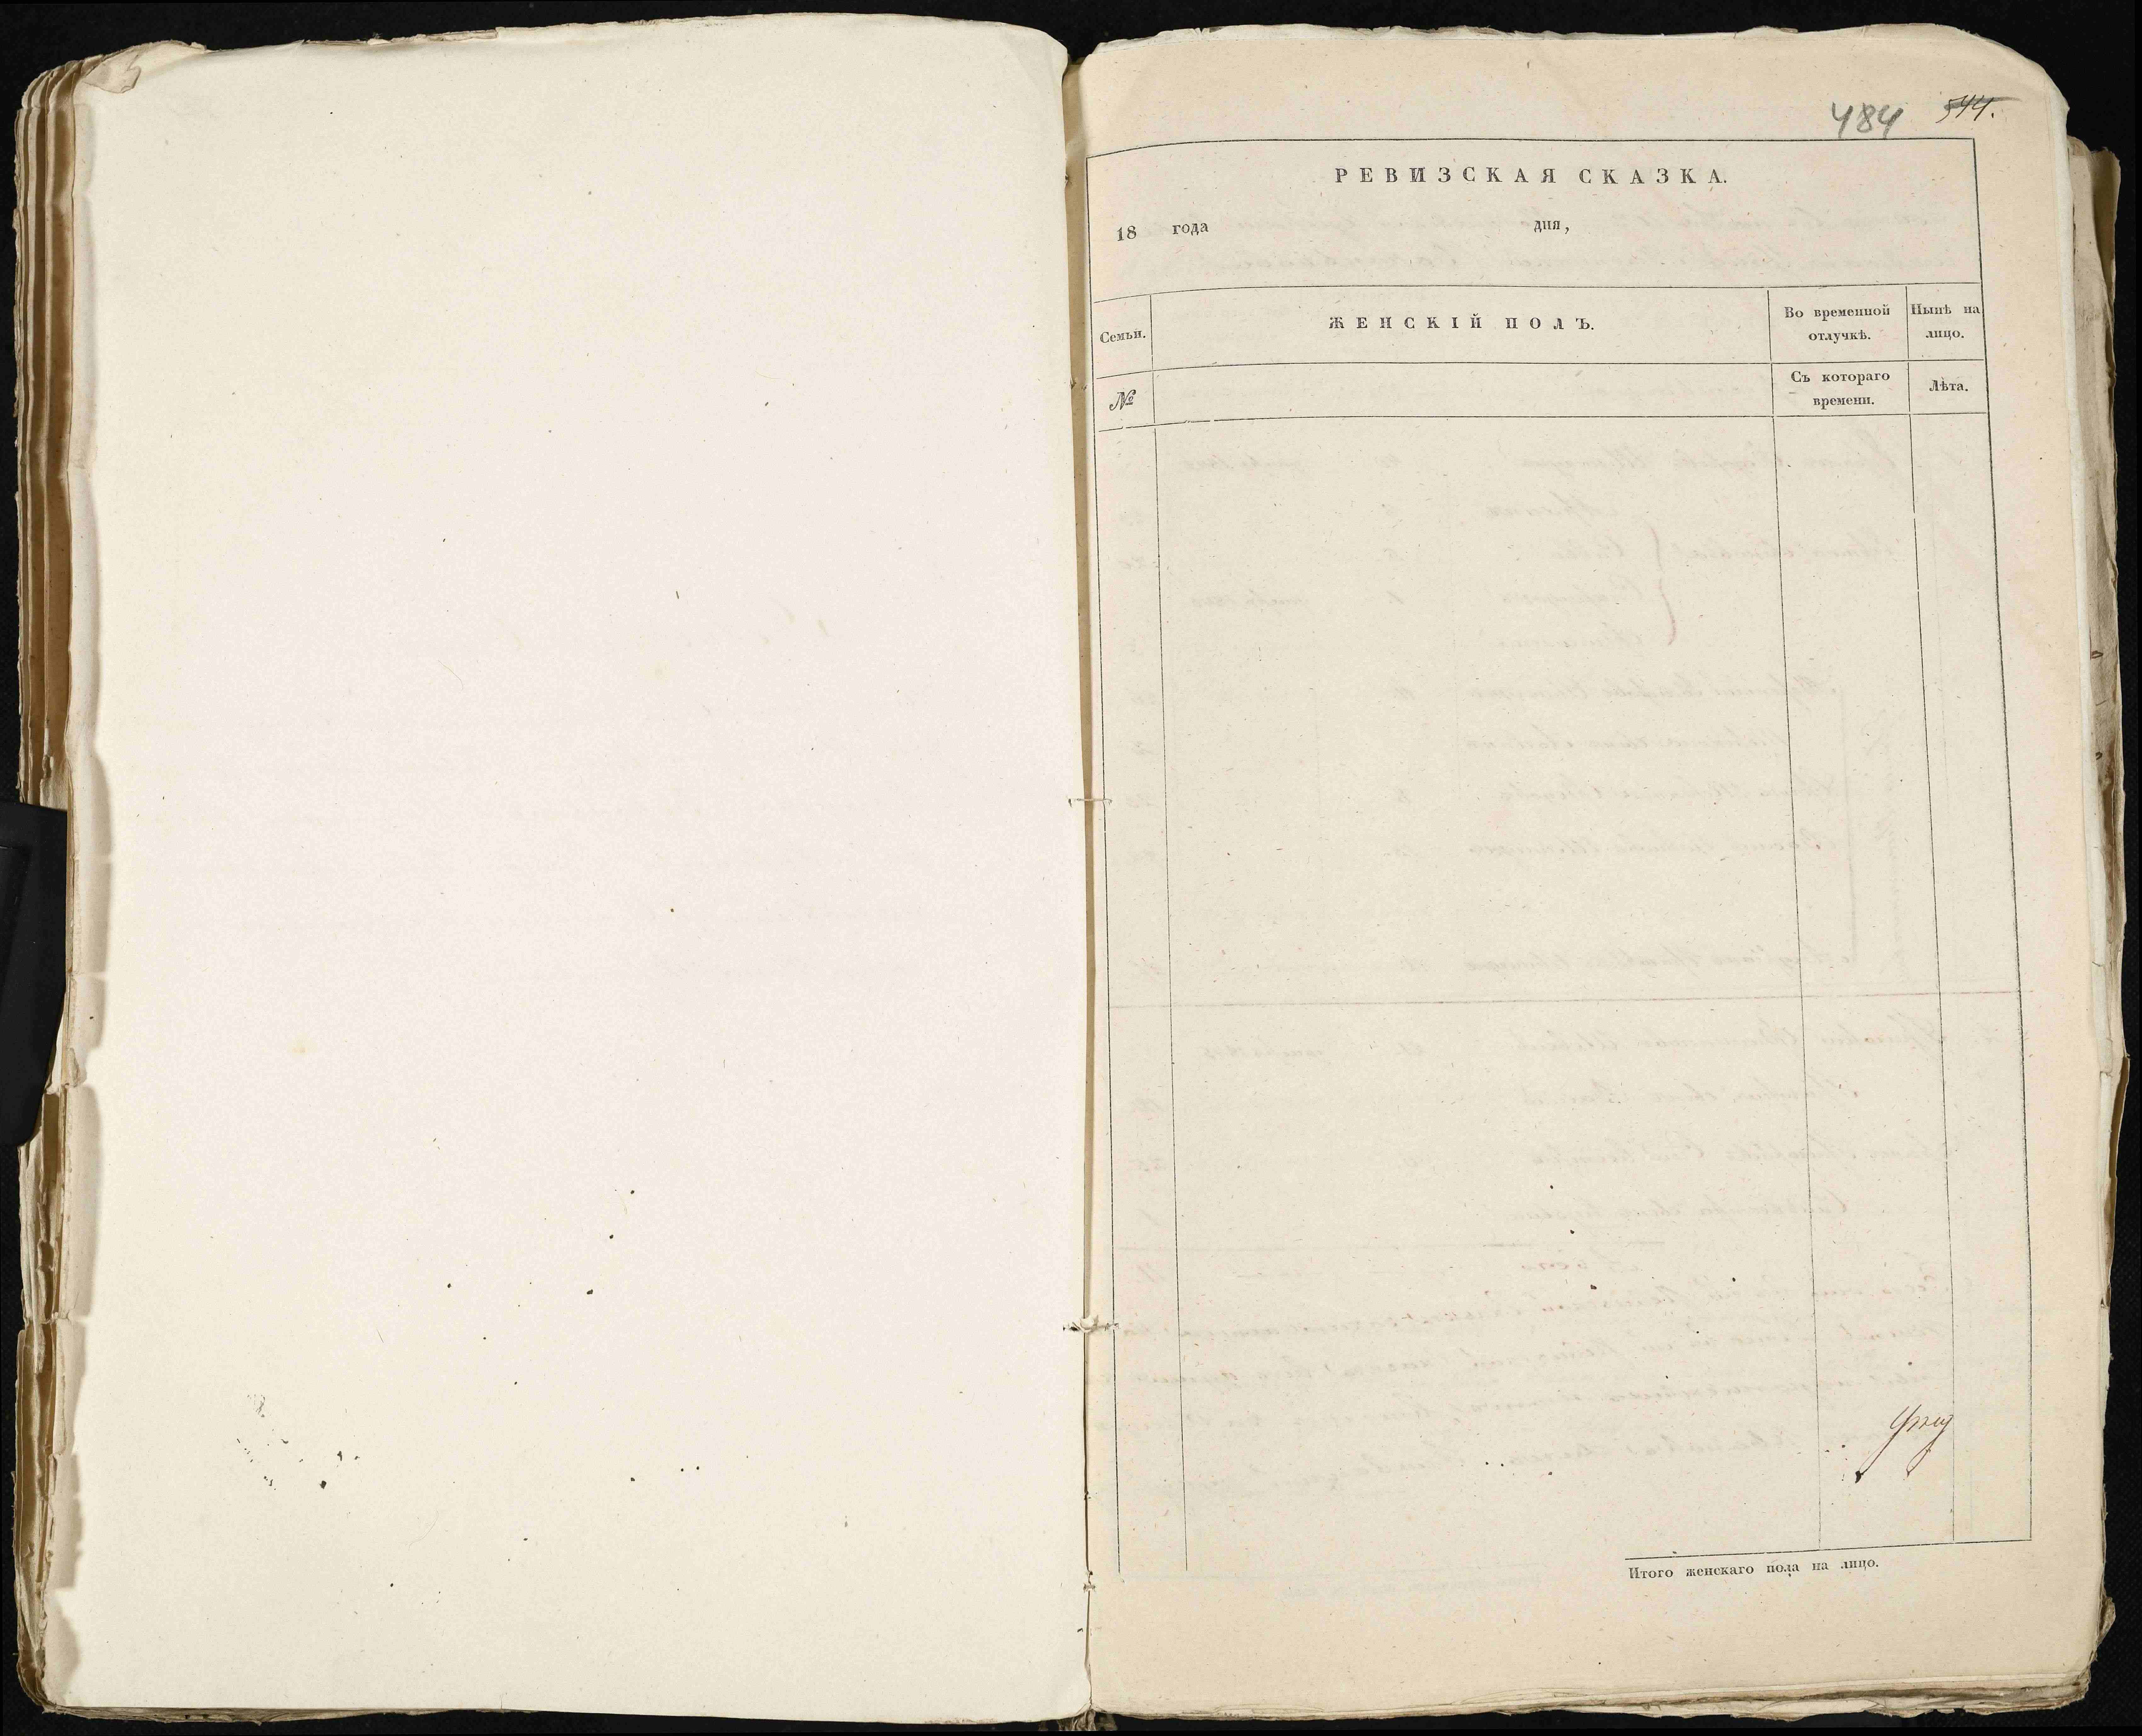 484 544.
РЕВИЗСКАЯ СКАЗКА.
18 года дня,
Семьи.
ЖЕНСКІЙ ПОЛЪ.
Во временной
отлучкѣ.
Нынѣ на
лицо.
№
Съ котораго
времени.
Лѣта.
Итого женскаго пола на лицо.